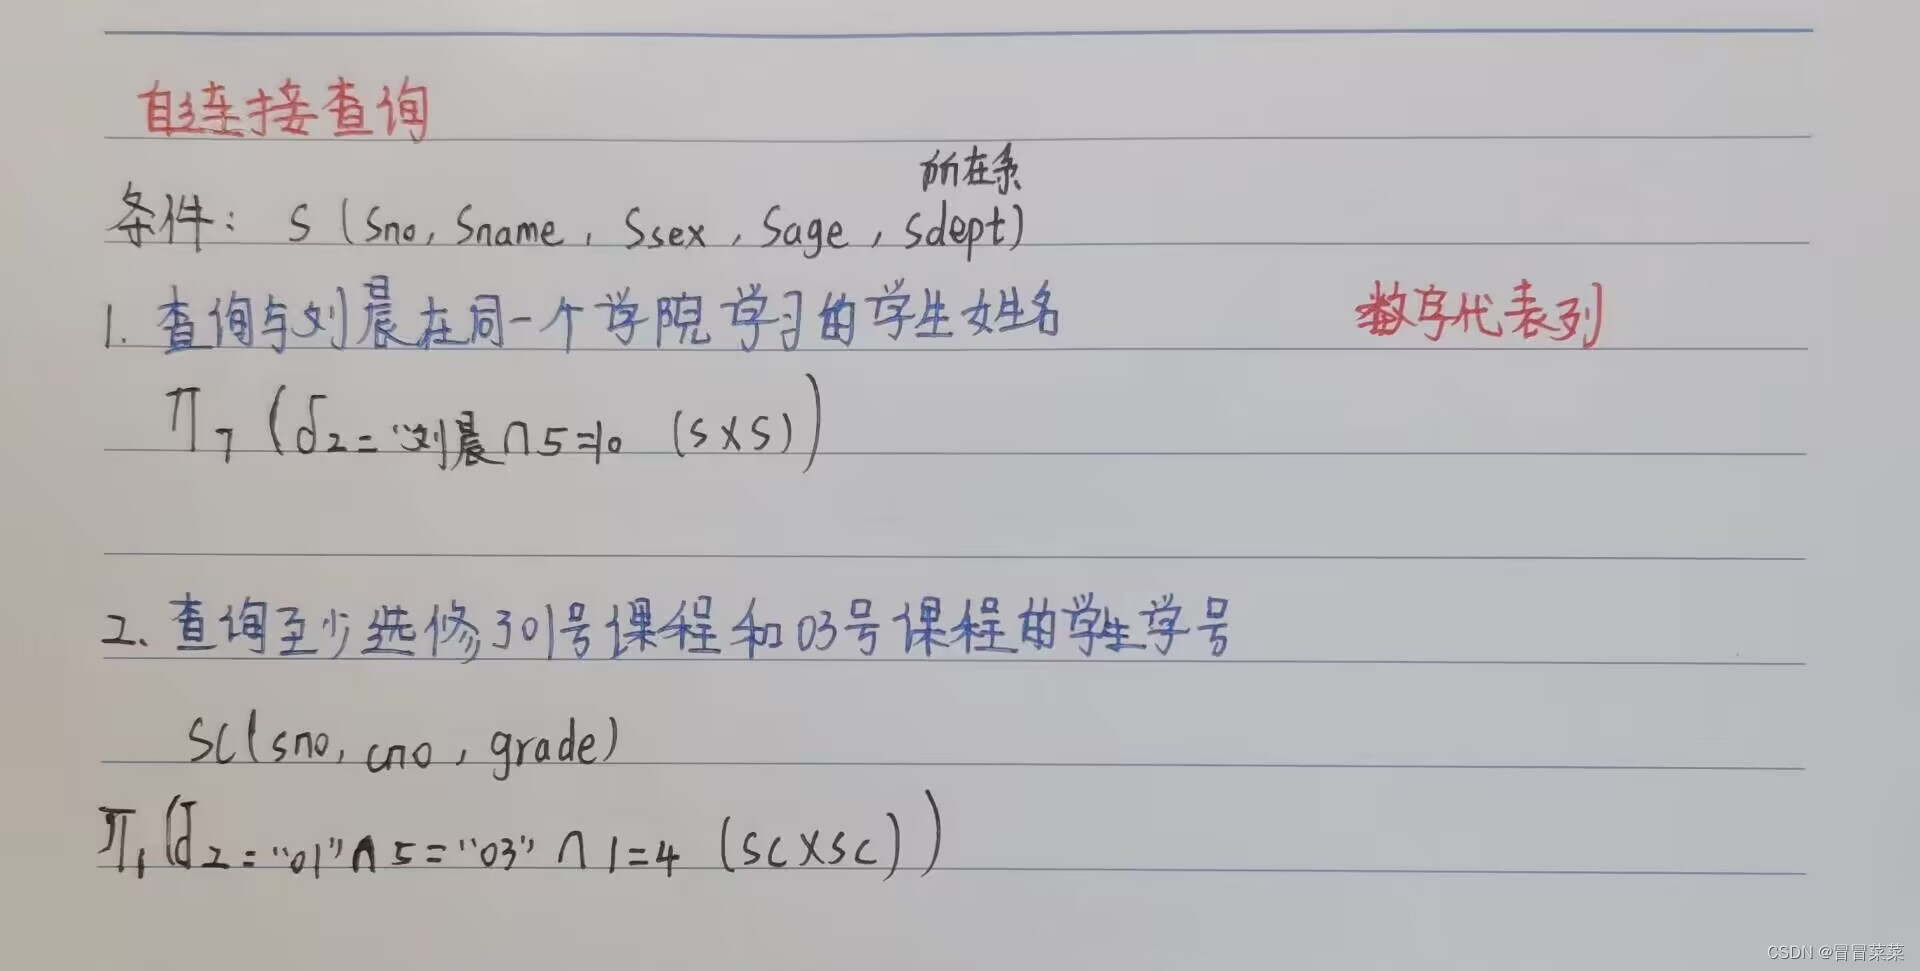 自连接查询
所在系
条件: S (Sno, Sname, Ssex, Sage, Sdept)
1. 查询与刘晨在同一个学院学习的学生姓名
数字代表列
π7 (δ2="刘晨∩5=10 (S×S))
2. 查询至少选修了01号课程和03号课程的学生学号
SC(sno, cno, grade)
π1(δ2="01"∩5="03"∩1=4 (SC×SC))
CSDN @冒冒菜菜